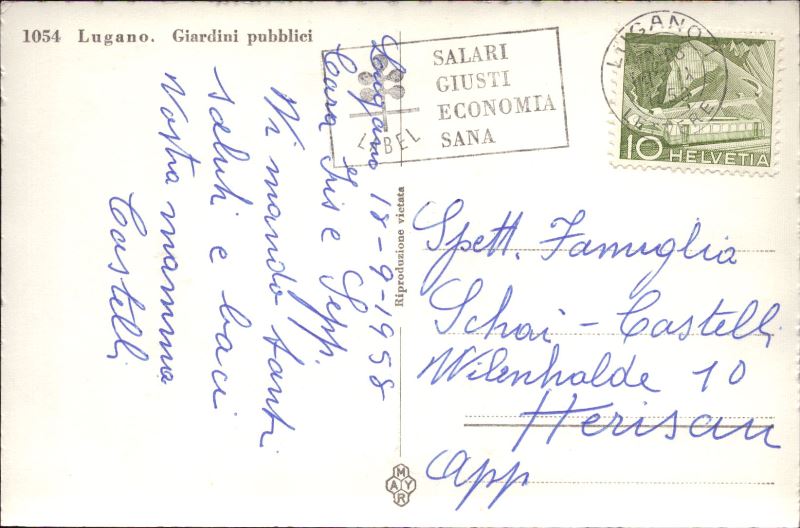 1054 Lugano. Giardini pubblici
SALARI
GIUSTI
ECONOMIA
SANA
LABEL
LUGANO 1
LETTERE
10 HELVETIA
Lugano 18-9-1958
Cara Iris e Sepp.
Vi mando tanti
saluti e baci
Vostra mamma
Castelli
Riproduzione vietata
Spett. Famuglia
Schai - Castelli
Wilenhalde 10
Herisau
App
MAYR